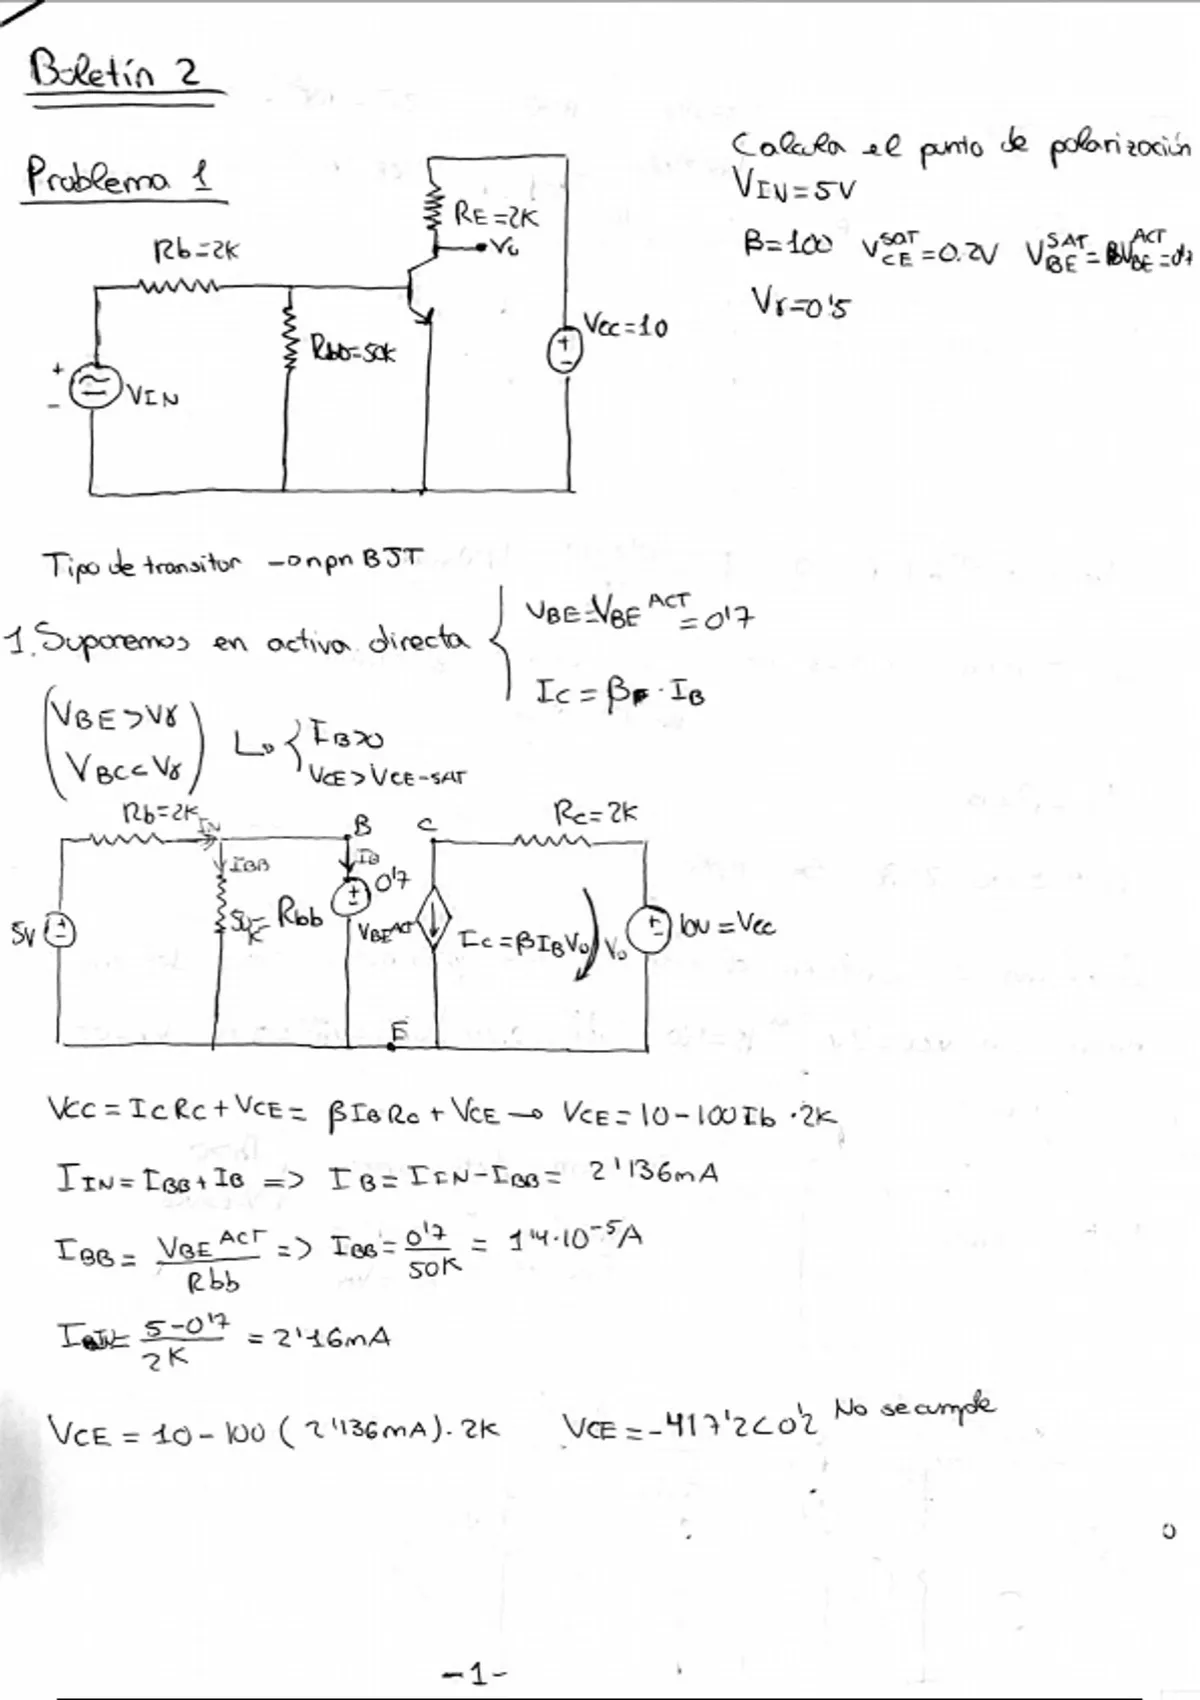 Boletín 2
Problema 1
Calcula el punto de polarización
VIN=5V
β=100 VCE^SAT=0.2V VBE^SAT=VBE^ACT=0'7
Vγ=0'5
Rb=2K
RE=2K
Vo
Rbb=50K
Vcc=10
+
-
VIN
Tipo de transitor → npn BJT
1. Suporemos en activa directa
VBE=VBE^ACT=0'7
Ic = βF · IB
(VBE>Vγ
VBC<Vγ)
IB>0
VCE>VCE-SAT
Rb=2K
IN
B
C
Rc=2K
IBB
IB
0'7
5V
50K
Rbb
VBE^ACT
Ic=βIB
Vo
Vo
10V=Vcc
E
Vcc = IcRc+VCE= βIBRc+VCE → VCE=10-100Ib·2K
IIN=IBB+IB => IB=IIN-IBB= 2'136mA
IBB= VBE^ACT/Rbb => IBB= 0'7/50K = 1'4·10^-5A
IIN= 5-0'7/2K = 2'16mA
VCE = 10-100(2'136mA).2K VCE=-417'2<0'2 No se cumple
-1-